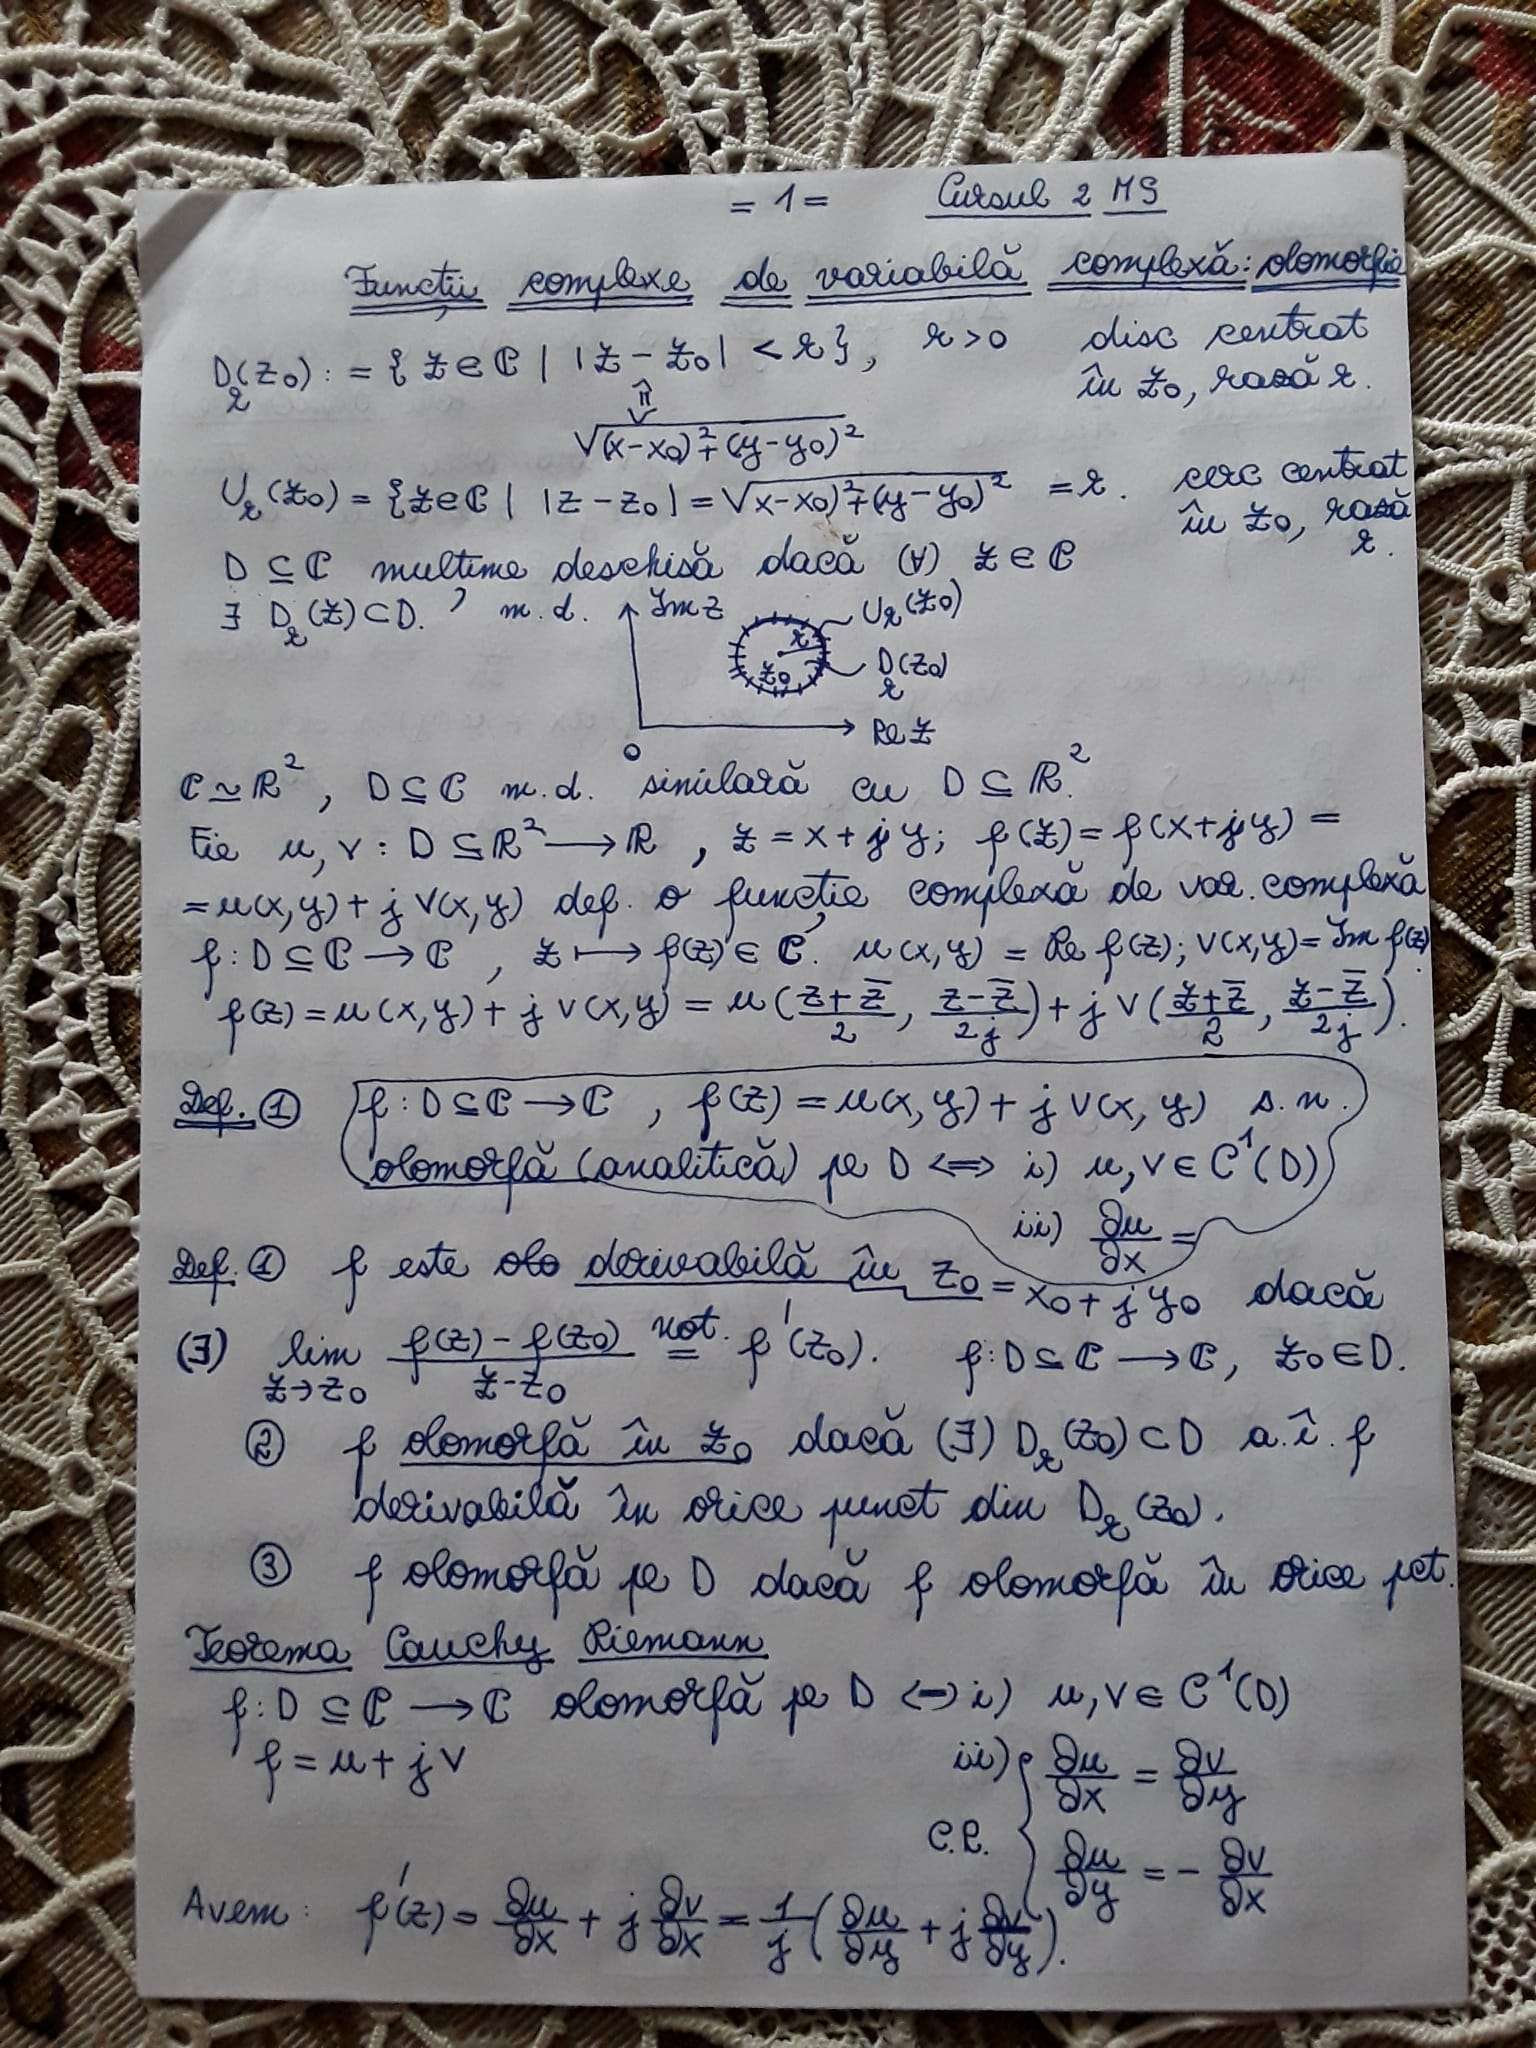 = 1 = Cursul 2 MS
Funcții complexe de variabilă complexă: olomorfie
D_r(z₀) := {z ∈ ℂ | |z − z₀| < r}, r > 0 disc centrat
în z₀, rază r.
√(x−x₀)² + (y−y₀)²
U_r(z₀) = {z ∈ ℂ | |z − z₀| = √x−x₀)² + (y−y₀)² = r. cerc centrat
în z₀, rază
r.
D ⊆ ℂ multime deschisă dacă (∀) z ∈ ℂ
∃ D_r(z) ⊂ D. , m.d.
Im z
U_r(z₀)
r
z₀
D_r(z₀)
Re z
0
ℂ ≃ ℝ², D ⊆ ℂ m.d. similară cu D ⊆ ℝ².
Fie u, v : D ⊆ ℝ² → ℝ, z = x + jy; f(z) = f(x + jy) =
= u(x,y) + j v(x,y) def. o funcție complexă de var. complexă
f : D ⊆ ℂ → ℂ, z ↦ f(z) ∈ ℂ. u(x,y) = Re f(z); v(x,y) = Im f(z)
f(z) = u(x,y) + j v(x,y) = u((z+z̄)/2, (z−z̄)/2j) + j v((z+z̄)/2, (z−z̄)/2j).
Def. ① f : D ⊆ ℂ → ℂ, f(z) = u(x,y) + j v(x,y) s.n.
olomorfă (analitică) pe D ⟺ i) u, v ∈ C¹(D)
ii) ∂u/∂x =
Def. ① f este olo derivabilă în z₀ = x₀ + jy₀ dacă
(∃) lim_{z→z₀} (f(z) − f(z₀))/(z − z₀) not.= f'(z₀). f : D ⊆ ℂ → ℂ, z₀ ∈ D.
② f olomorfă în z₀ dacă (∃) D_r(z₀) ⊂ D a.î. f
derivabilă în orice punct din D_r(z₀).
③ f olomorfă pe D dacă f olomorfă în orice pct.
Teorema Cauchy Riemann
f : D ⊆ ℂ → ℂ olomorfă pe D ⟺ i) u, v ∈ C¹(D)
f = u + jv ii) { ∂u/∂x = ∂v/∂y
C.R. ∂u/∂y = − ∂v/∂x
Avem: f'(z) = ∂u/∂x + j ∂v/∂x = 1/j (∂u/∂y + j ∂v/∂y).